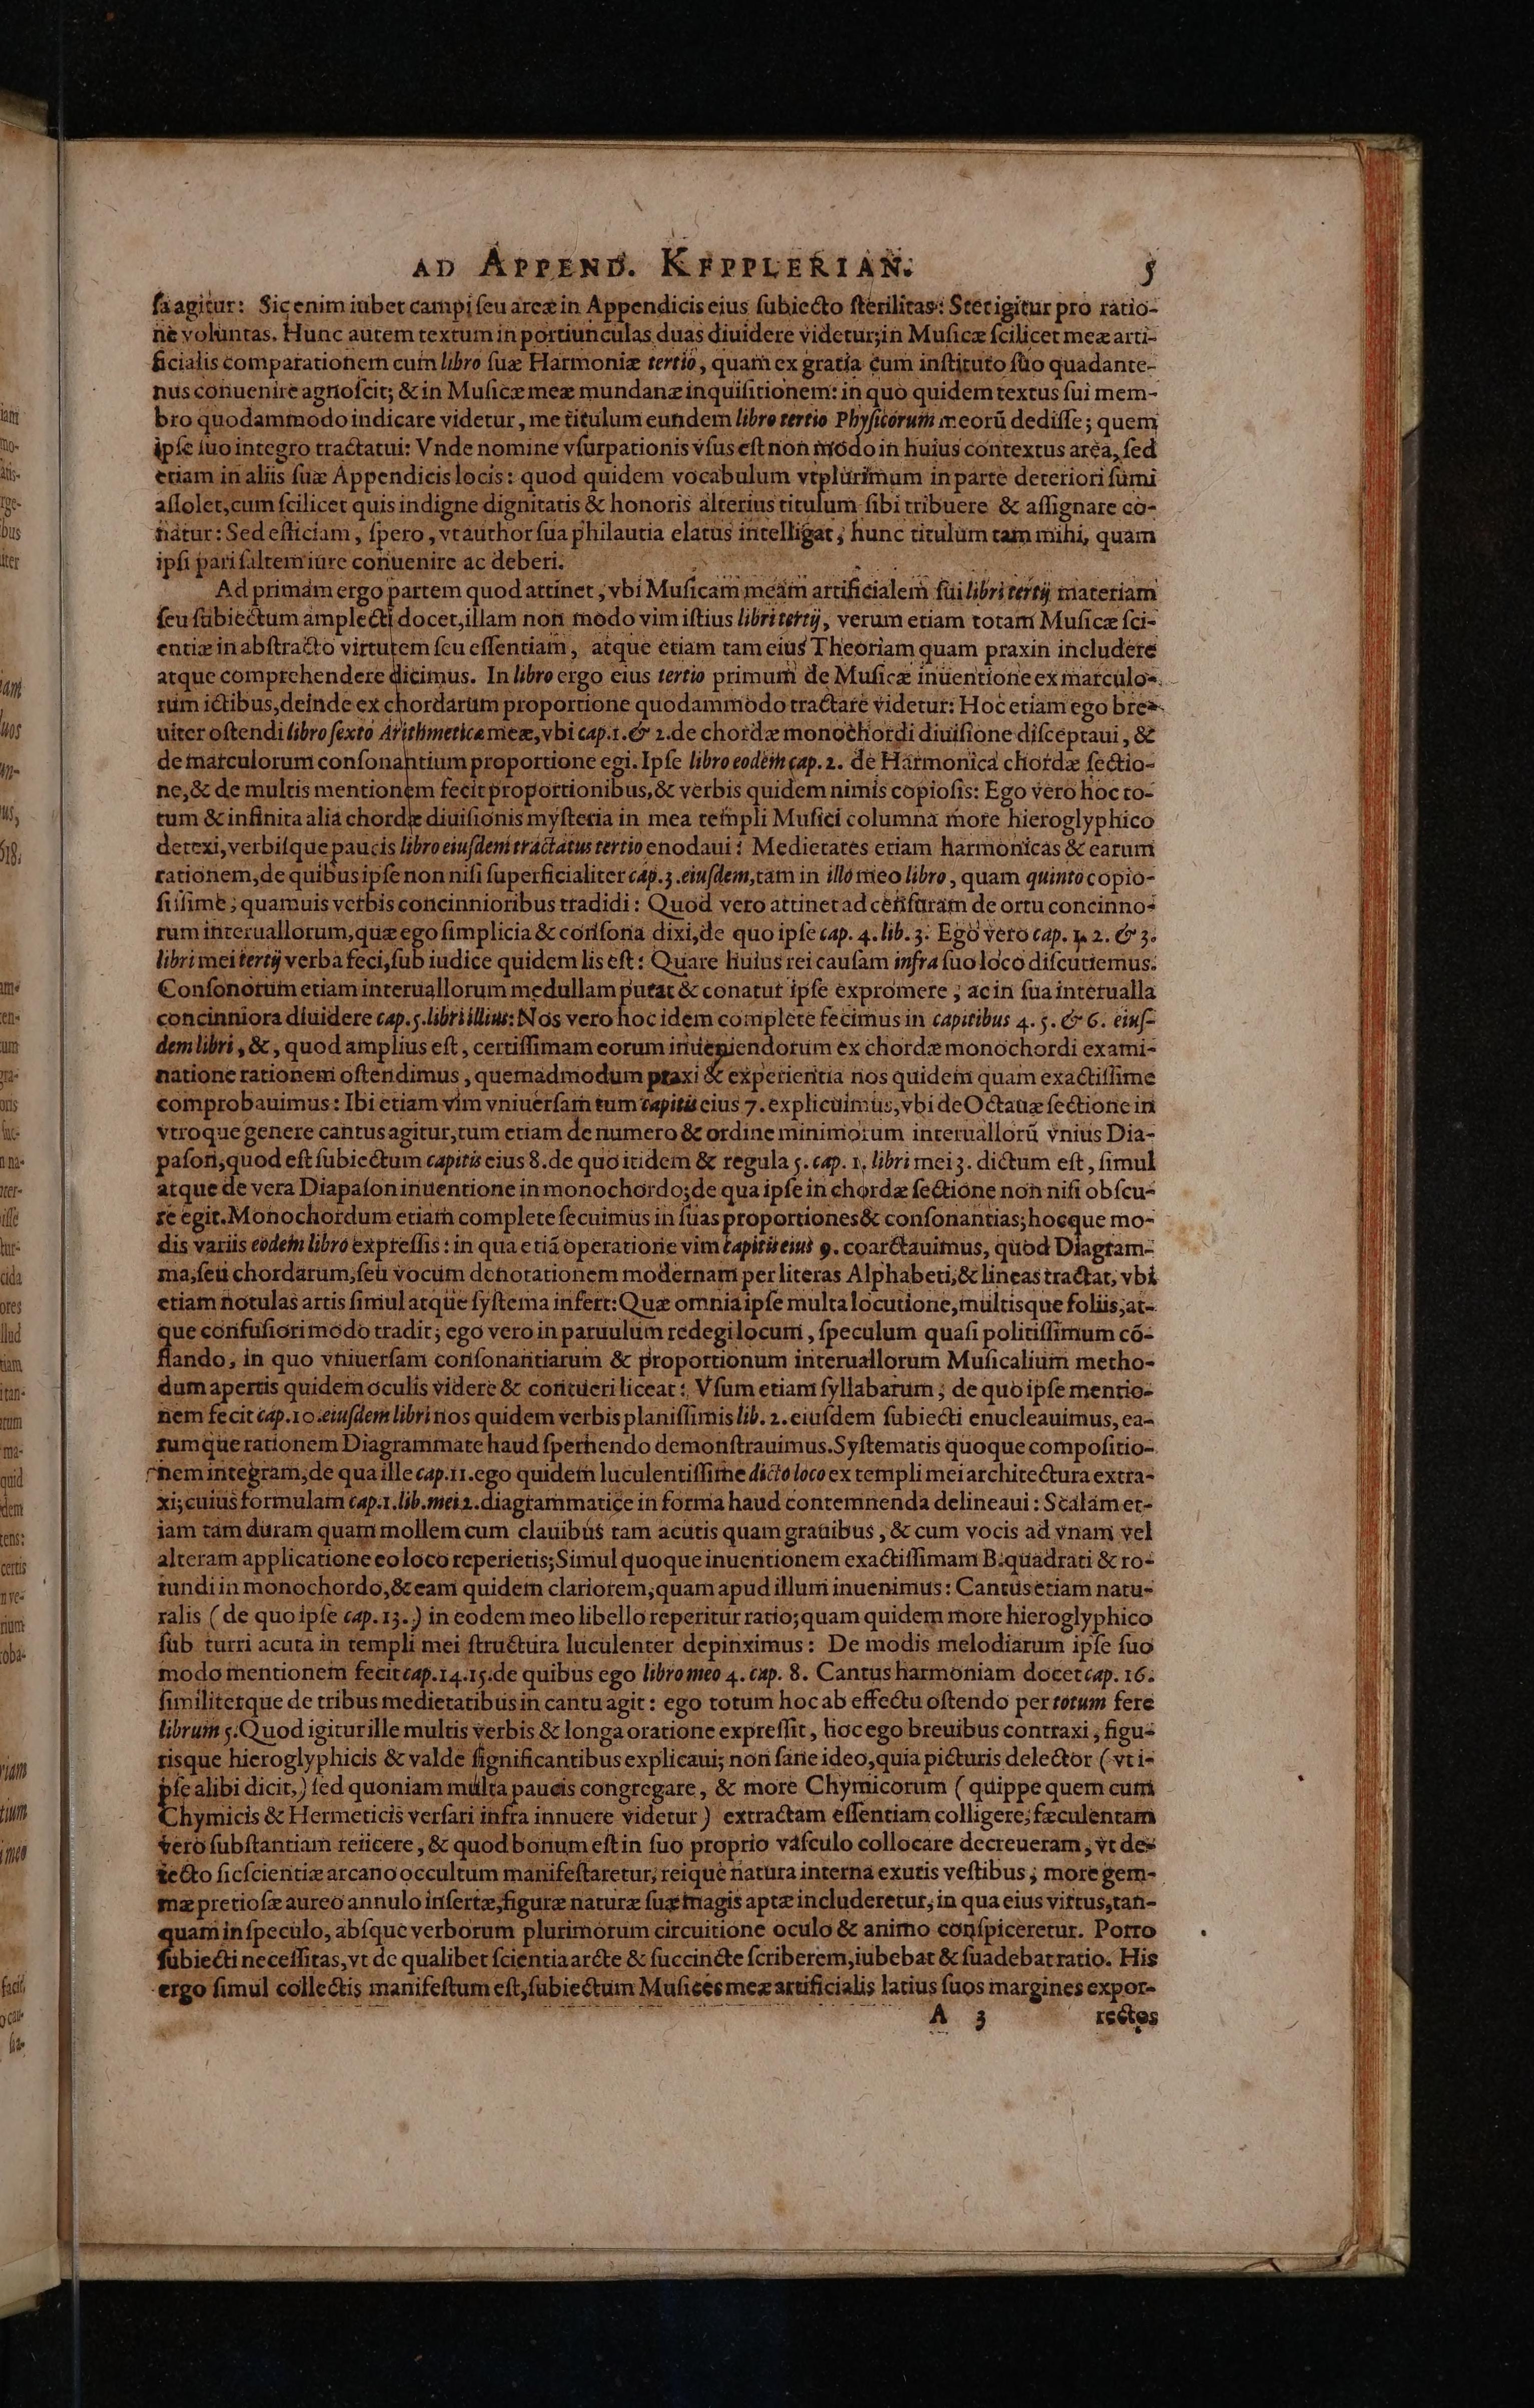 AD APPEND. KEPPLERIAN. 5
ſa agitur: Sic enim iubet campi ſeu areæ in Appendicis eius ſubiecto ſterilitas: Stet igitur pro ratio-
ne voluntas. Hunc autem textum in portiunculas duas diuidere videtur; in Muſicæ ſcilicet meæ arti-
ficialis comparationem cum libro ſuæ Harmoniæ tertio, quam ex gratia cum inſtituto ſuo quadante-
nus conuenire agnoſcit; & in Muſicæ meæ mundanæ inquiſitionem: in quo quidem textus ſui mem-
bro quodammodo indicare videtur, me titulum eundem libro tertio Phyſicorum meorũ dediſſe; quem
ipſe ſuo integro tractatui: Vnde nomine vſurpationis vſus eſt non modo in huius contextus area, ſed
etiam in aliis ſuæ Appendicis locis: quod quidem vocabulum vt plurimum in parte deteriori ſumi
aſſolet, cum ſcilicet quis indigne dignitatis & honoris alterius titulum ſibi tribuere & aſſignare co-
natur: Sed efficiam, ſpero, vt author ſua philautia elatus intelligat; hunc titulum tam mihi, quam
ipſi pari ſaltem iure conuenire ac deberi.
Ad primam ergo partem quod attinet, vbi Muſicam meam artificialem ſui libri tertij materiam
ſeu ſubiectum amplecti docet, illam non modo vim iſtius libri tertij, verum etiam totam Muſicæ ſci-
entiæ in abſtracto virtutem ſeu eſſentiam, atque etiam tam eius Theoriam quam praxin includere
atque comprehendere dicimus. In libro ergo eius tertio primum de Muſicæ inuentione ex marculo-
rum ictibus, deinde ex chordarum proportione quodammodo tractare videtur: Hoc etiam ego bre-
uiter oſtendi libro ſexto Arithmeticæ meæ, vbi cap. 1. & 2. de chordæ monochordi diuiſione diſceptaui, &
de marculorum conſonantium proportione egi. Ipſe libro eodem cap. 2. de Harmonica chordæ ſectio-
ne, & de multis mentionem fecit proportionibus, & verbis quidem nimis copioſis: Ego vero hoc to-
tum & infinita alia chordæ diuiſionis myſteria in mea templi Muſici columna more hieroglyphico
detexi, verbiſque paucis libro eiuſdem tractatus tertio enodaui: Medietates etiam harmonicas & earum
rationem, de quibus ipſe non niſi ſuperficialiter cap. 3. eiuſdem, tam in illo meo libro, quam quinto copio-
ſiſſime; quamuis verbis concinnioribus tradidi: Quod vero attinet ad cenſuram de ortu concinno-
rum interuallorum, quæ ego ſimplicia & conſona dixi, de quo ipſe cap. 4. lib. 3. Ego vero cap. 1. 2. & 3.
libri mei tertij verba feci, ſub iudice quidem lis eſt: Quare huius rei cauſam infra ſuo loco diſcutiemus.
Conſonorum etiam interuallorum medullam putat & conatur ipſe expromere; ac in ſua interualla
concinniora diuidere cap. 5. libri illius: Nos vero hoc idem complete fecimus in capitibus 4. 5. & 6. eiuſ-
dem libri, &, quod amplius eſt, certiſſimam eorum inueniendorum ex chordæ monochordi exami-
natione rationem oſtendimus, quemadmodum praxi & experientia nos quidem quam exactiſſime
comprobauimus: Ibi etiam vim vniuerſam tum capitis eius 7. explicuimus, vbi de Octauæ ſectione in
vtroque genere cantus agitur, tum etiam de numero & ordine minimorum interuallorũ vnius Dia-
paſon, quod eſt ſubiectum capitis eius 8. de quo itidem & regula 5. cap. 1. libri mei 3. dictum eſt, ſimul
atque de vera Diapaſon inuentione in monochordo; de qua ipſe in chordæ ſectione non niſi obſcu-
re egit. Monochordum etiam complete ſecuimus in ſuas proportiones & conſonantias; hocque mo-
dis variis eodem libro expreſſis: in qua etiã operatione vim capitis eius 9. coarctauimus, quod Diagram-
ma, ſeu chordarum, ſeu vocum denotationem modernam per literas Alphabeti, & lineas tractat, vbi
etiam notulas artis ſimul atque ſyſtema infert: Quæ omnia ipſe multa locutione, multisque foliis, at-
que confuſiori modo tradit; ego vero in paruulum redegi locum, ſpeculum quaſi politiſſimum cõ-
flando, in quo vniuerſam conſonantiarum & proportionum interuallorum Muſicalium metho-
dum apertis quidem oculis videre & contueri liceat: Vſum etiam ſyllabarum; de quo ipſe mentio-
nem fecit cap. 10. eiuſdem libri nos quidem verbis planiſſimis lib. 2. eiuſdem ſubiecti enucleauimus, ea-
rumque rationem Diagrammate haud ſpernendo demonſtrauimus. Syſtematis quoque compoſitio-
nem integram, de qua ille cap. 11. ego quidem luculentiſſime dicto loco ex templi mei architectura extra-
xi; cuius formulam cap. 1. lib. mei 2. diagrammatice in forma haud contemnenda delineaui: Scalam et-
iam tam duram quam mollem cum clauibus tam acutis quam grauibus, & cum vocis ad vnam vel
alteram applicatione eo loco reperietis; Simul quoque inuentionem exactiſſimam B. quadrati & ro-
tundi in monochordo, & eam quidem clariorem, quam apud illum inuenimus: Cantus etiam natu-
ralis ( de quo ipſe cap. 13. ) in eodem meo libello reperitur ratio; quam quidem more hieroglyphico
ſub turri acuta in templi mei ſtructura luculenter depinximus: De modis melodiarum ipſe ſuo
modo mentionem fecit cap. 14. 15. de quibus ego libro meo 4. cap. 8. Cantus harmoniam docet cap. 16.
ſimiliterque de tribus medietatibus in cantu agit: ego totum hoc ab effectu oſtendo per totum fere
librum 5. Quod igitur ille multis verbis & longa oratione expreſſit, hoc ego breuibus contraxi, figu-
risque hieroglyphicis & valde ſignificantibus explicaui; non ſane ideo, quia picturis delector ( vt i-
pſe alibi dicit, ) ſed quoniam multa paucis congregare, & more Chymicorum ( quippe quem cum
Chymicis & Hermeticis verſari infra innuere videtur ) extractam eſſentiam colligere; fæculentam
vero ſubſtantiam reiicere, & quod bonum eſt in ſuo proprio vaſculo collocare decreueram, vt de-
tecto ſic ſcientiæ arcano occultum manifeſtaretur; reique natura interna exutis veſtibus, more gem-
mæ pretioſæ aureo annulo inſertæ, figuræ naturæ ſuæ magis aptæ includeretur, in qua eius virtus, tan-
quam in ſpeculo, abſque verborum plurimorum circuitione oculo & animo conſpiceretur. Porro
ſubiecti neceſſitas, vt de qualibet ſcientia arcte & ſuccincte ſcriberem, iubebat & ſuadebat ratio. His
ergo ſimul collectis manifeſtum eſt, ſubiectum Muſices meæ artificialis latius ſuos margines expor-
A 3 rectos